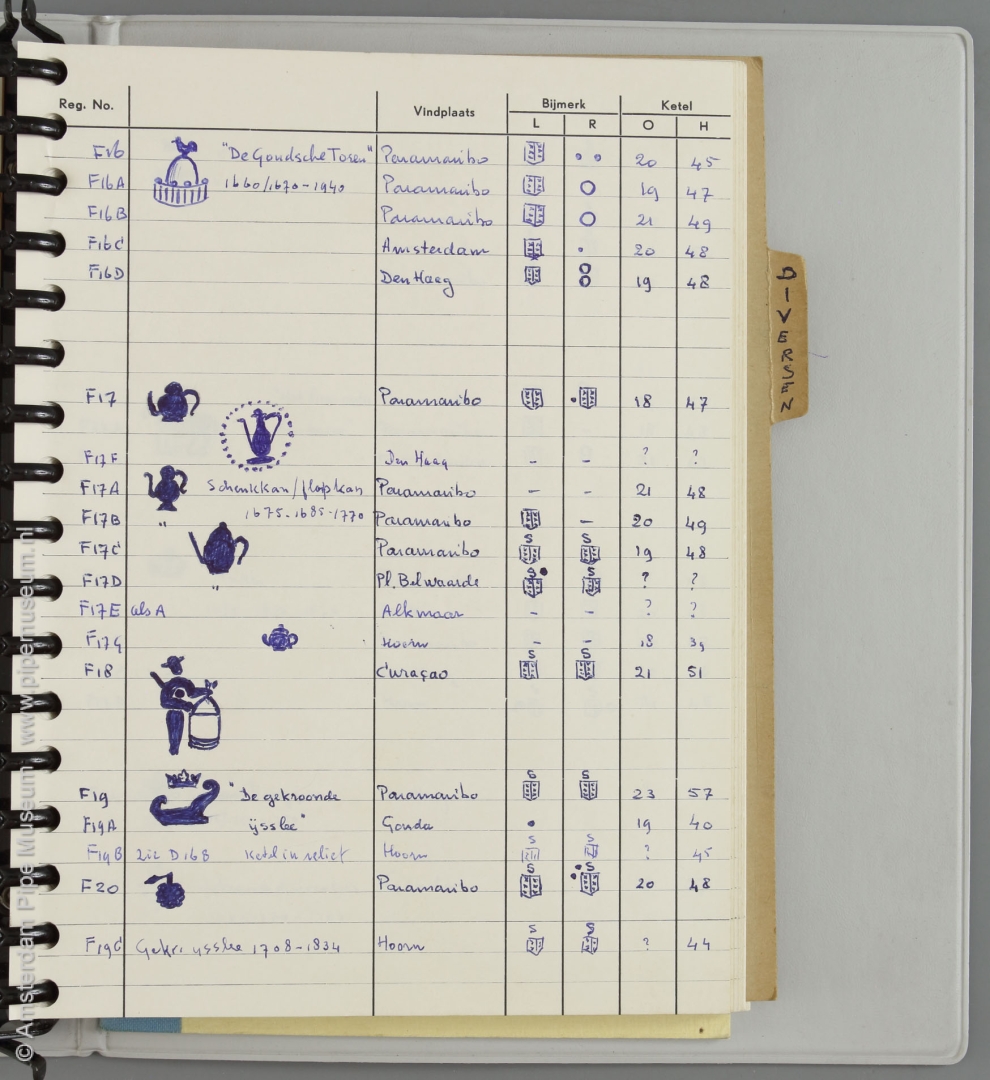 Reg. No. Vindplaats Bijmerk Ketel
L R O H
F16 "De Goudsche Toren" Paramaribo 20 45
F16A 1660/1670-1940 Paramaribo 19 47
F16B Paramaribo 21 49
F16C Amsterdam 20 48
F16D Den Haag 19 48
F17 Paramaribo 18 47
F17F Den Haag - - ? ?
F17A Schenkkan/flapkan Paramaribo - - 21 48
1675-1685-1770
F17B " Paramaribo - 20 49
F17C Paramaribo S S 19 48
F17D " Pl. Belwaarde S S ? ?
F17E als A Alkmaar - - ? ?
F17G Hoorn - - 18 39
F18 Curaçao S S 21 51
F19 "De gekroonde Paramaribo S S 23 57
F19A ijsslee" Gouda 19 40
F19B zie D168 Ketel in reliëf Hoorn S S ? 45
F20 Paramaribo S S 20 48
F19C Gekr. ijsslee 1708-1834 Hoorn S S ? 44
DIVERSEN
© Amsterdam Pipe Museum www.pipemuseum.nl